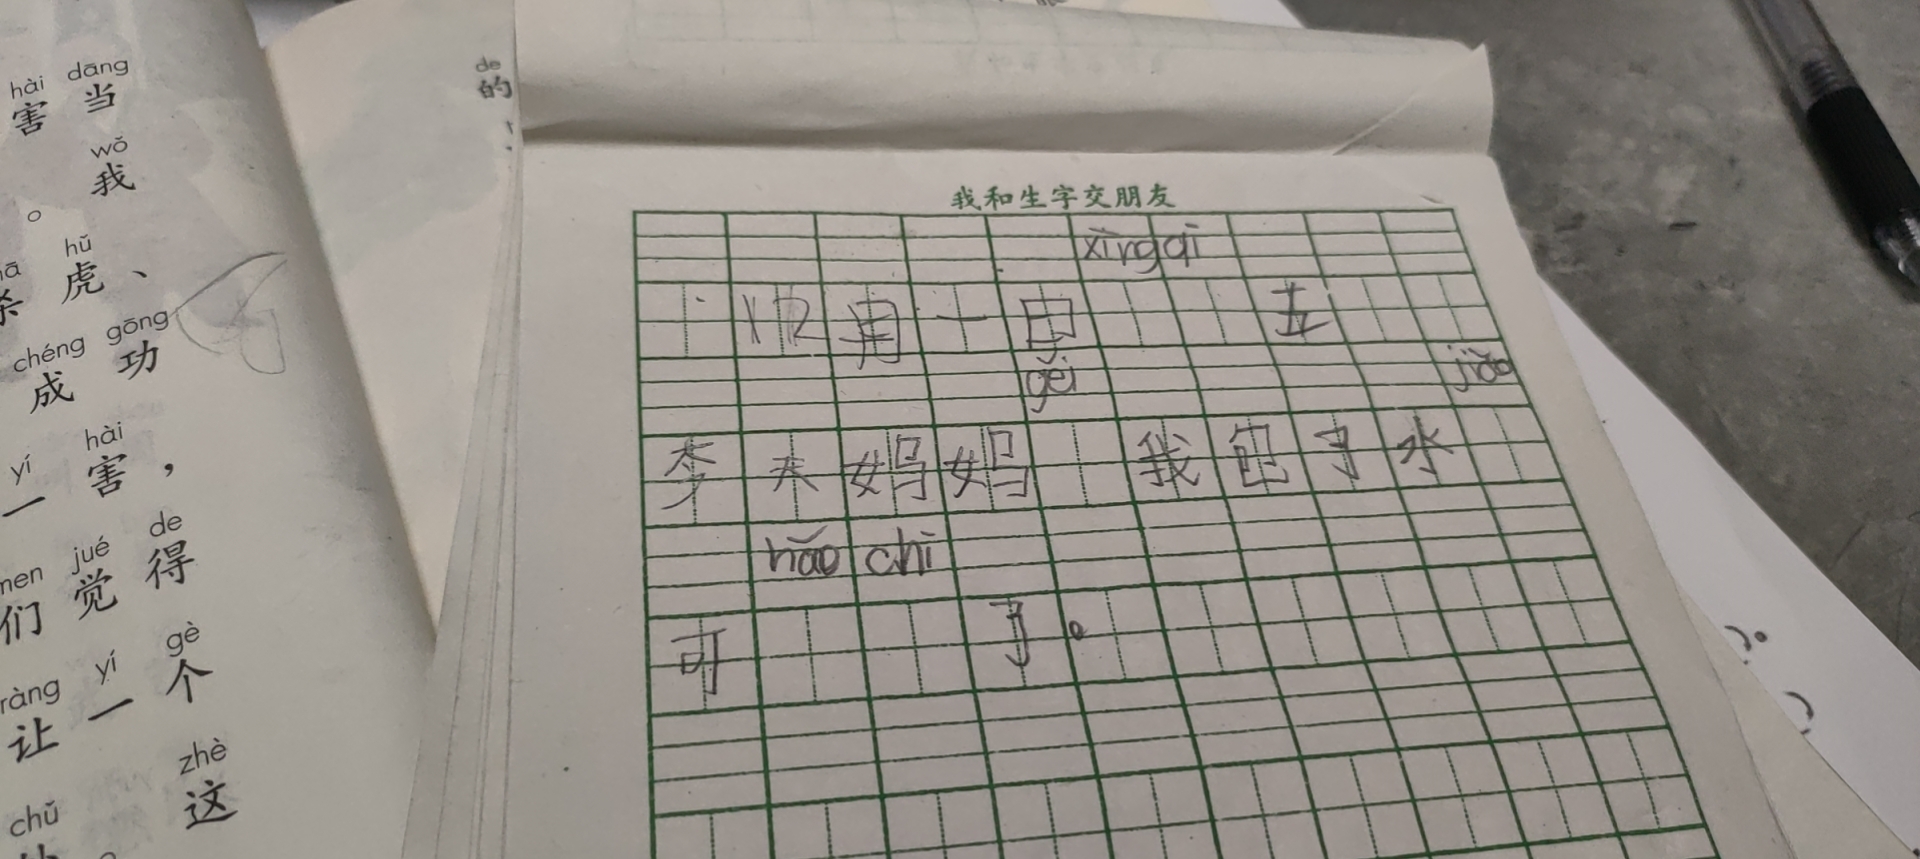 hài dāng
害 当
wǒ
我
。
hǔ
虎、
chéng gōng
成 功
hài
yí 害，
一
jué de
们 觉 得
ràng yí gè
让 一 个
zhè
这
chǔ
de
的
我和生字交朋友
xīng qī
12月十日 五
gěi jiǎo
李天妈妈 我包了水
hǎo chī
可 了。